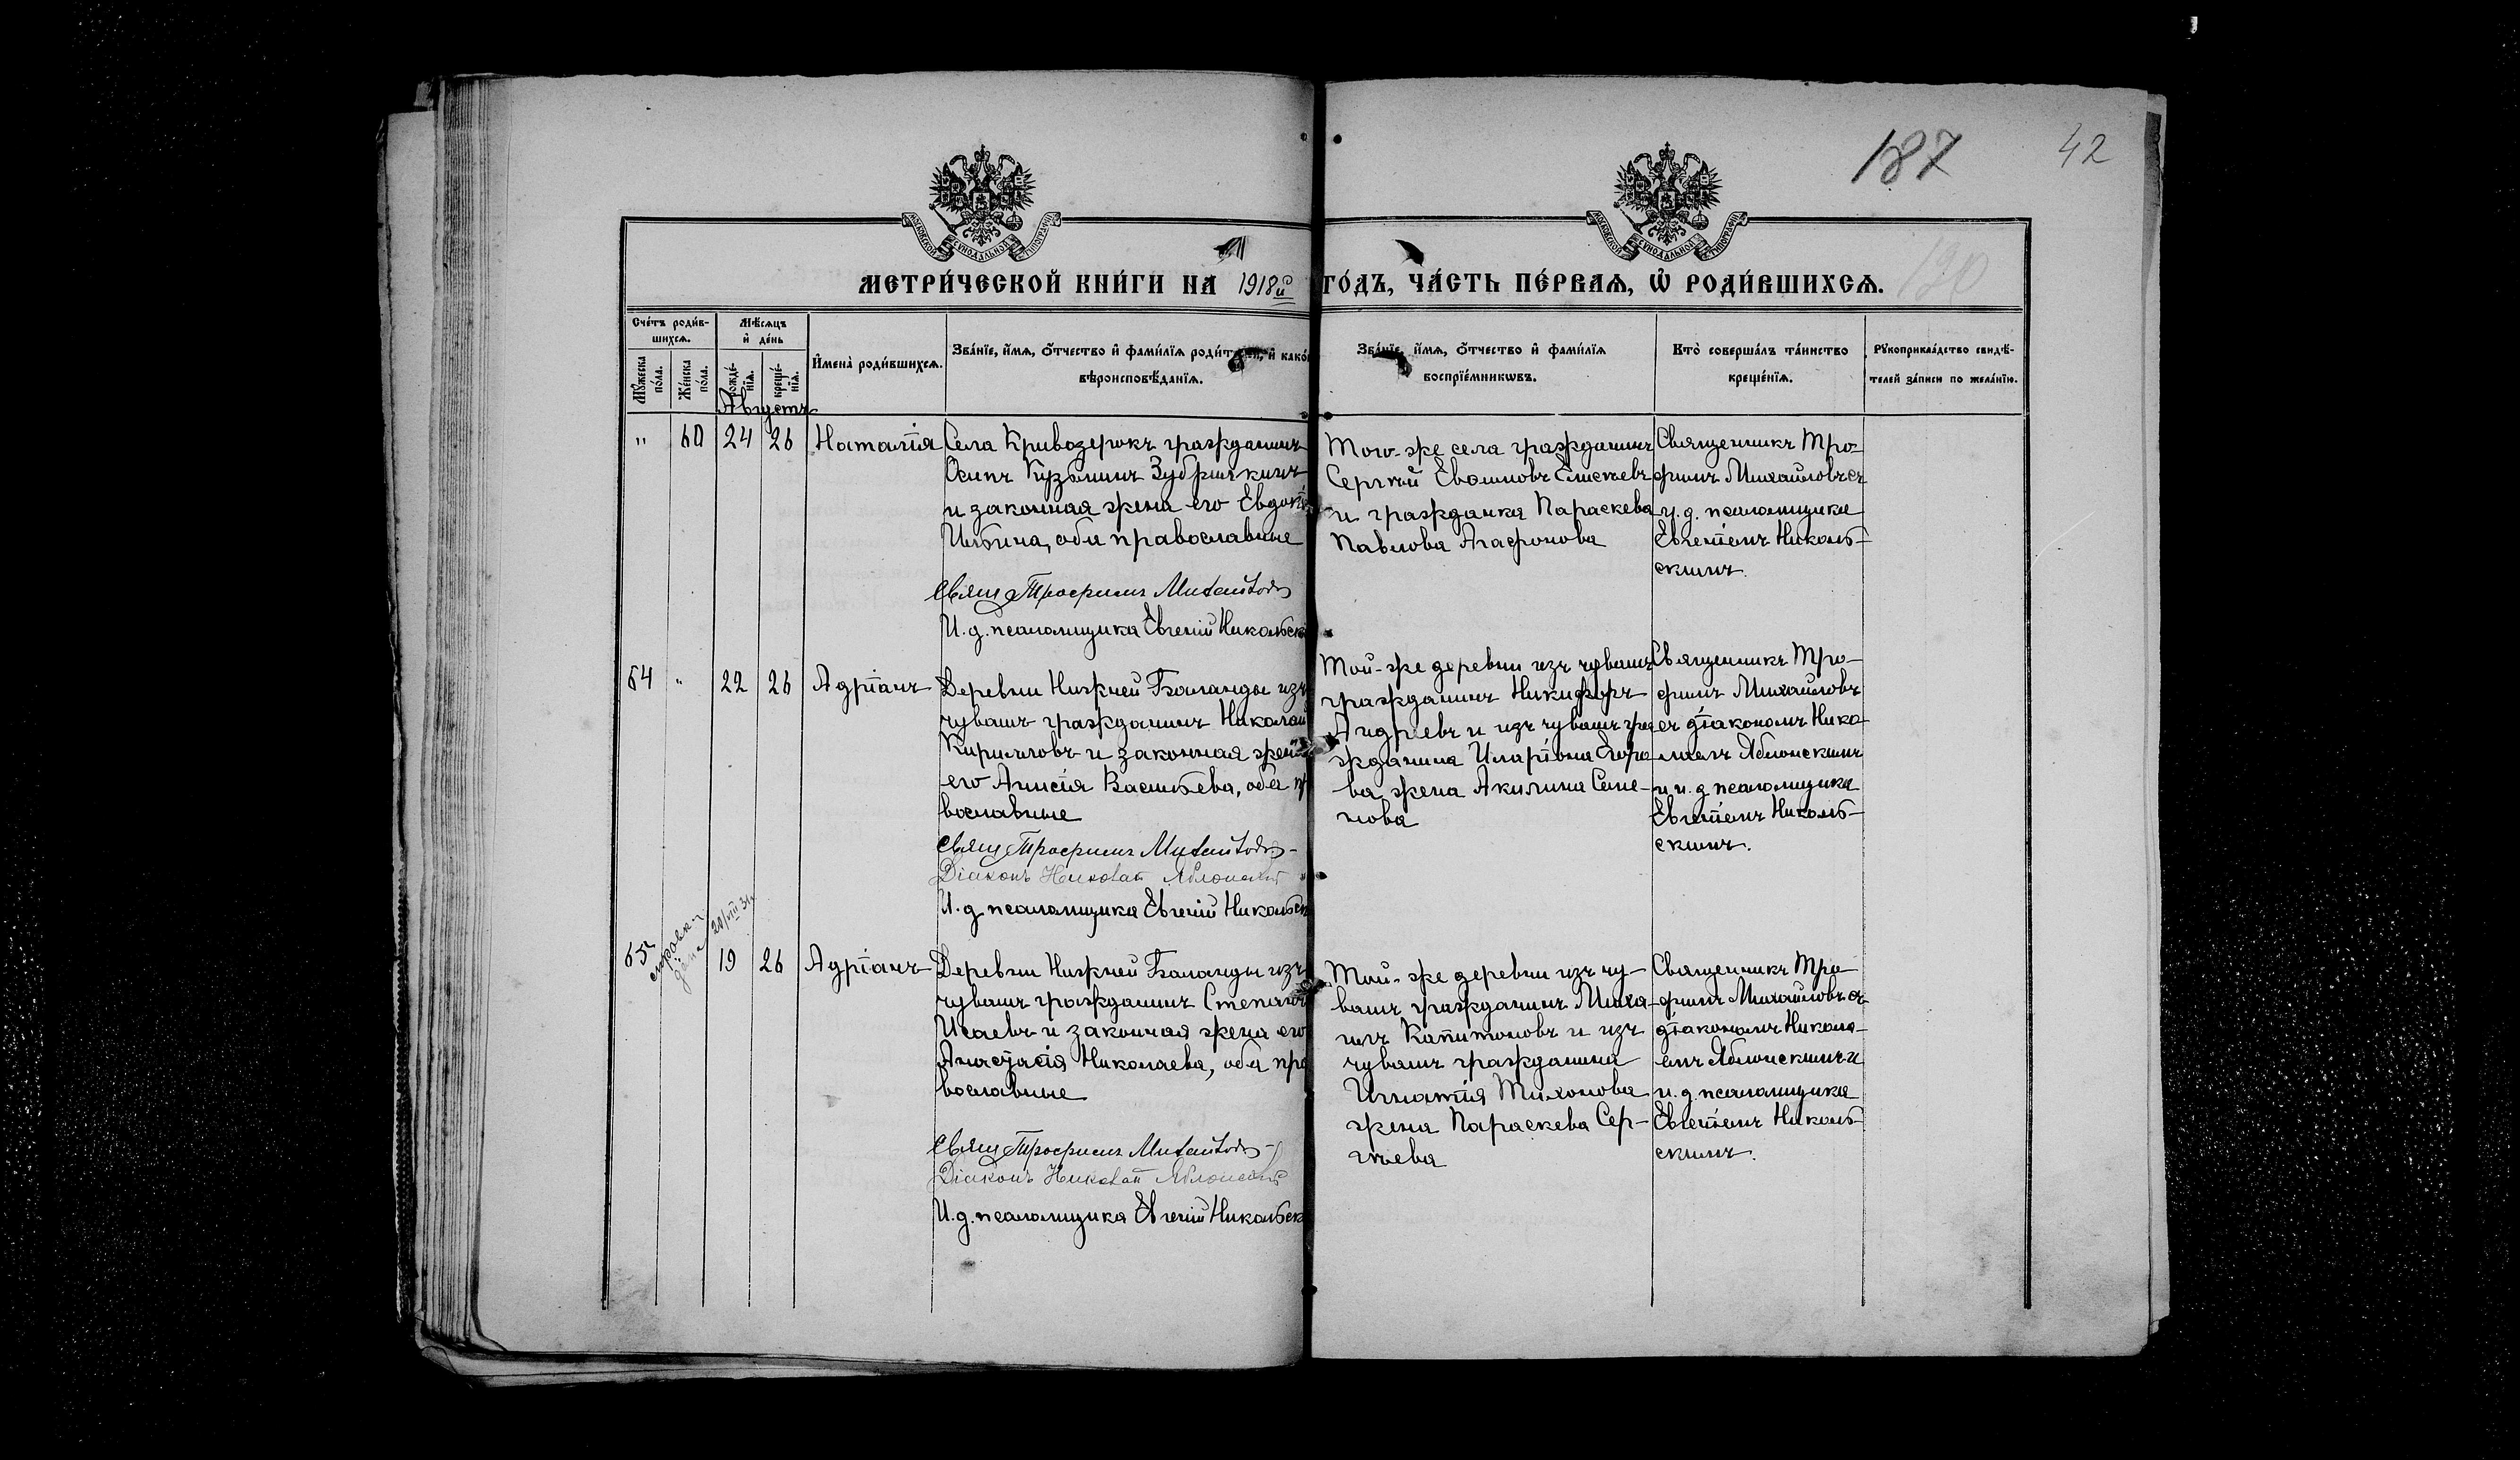 187
42
МОСКОВСКОЙ СѴНОДАЛЬНОЙ ТИПОГРАФИИ
МОСКОВСКОЙ СѴНОДАЛЬНОЙ ТИПОГРАФИИ
МЕТРИ́ЧЕСКОЙ КНИ́ГИ НА 1918й ГО́ДЪ, ЧА́СТЬ ПЕ́РВАѦ, Ѡ҆ РОДИ́ВШИХСѦ.
190
Сче́тъ роди́в-
шихсѧ.
Мѣ́сѧцъ
и҆ де́нь
Мꙋ́жеска
по́ла.
Же́нска
по́ла.
рожде́-
нїѧ.
креще́-
нїѧ.
И҆мена̀ роди́вшихсѧ.
Зва́нїе, и҆́мѧ, ѻ҆́тчество и҆ фами́лїѧ роди́телей, и҆ како́
вѣроисповѣ́данїѧ.
Зва́нїе, и҆́мѧ, ѻ҆́тчество и҆ фами́лїѧ
воспрїе́мникѡвъ.
Кто̀ соверша́лъ та́инство
креще́нїѧ.
Рꙋкоприкла́дство свидѣ́-
телей за́писи по жела́нїю.
Августъ
" 60 24 26 Наталія
Села Кривозерокъ гражданинъ
Осипъ Кузьминъ Зубринкинъ
и законная жена его Евдокі
Ильина, оба православные
Свящ Трофимъ Михайловъ
И. д. псаломщика Евгеній Никольск
Того-же села гражданинъ
Сергѣй Евдимовъ Елисѣевъ
и гражданка Параскева
Павлова Агафонова
Священникъ Тро-
фимъ Михайловъ съ
и. д. псаломщика
Евгеніемъ Николь-
скимъ.
64 " 22 26 Адріанъ
Деревни Нижней Баланды изъ
чувашъ гражданинъ Николай
Кирилловъ и законная жена
его Анисія Васильева, оба пр
вославные
Свящ Трофимъ Михайловъ
Діаконъ Николай Яблонскій
И. д. псаломщика Евгеній Никольск
Той-же деревни изъ чувашъ
гражданинъ Никифоръ
Андреевъ и изъ чувашъ гра
жданина Иларіона Егоро
ва жена Акилина Семе-
нова
Священникъ Тро-
фимъ Михайловъ
съ діакономъ Нико
лаемъ Яблонскимъ
и и. д. псаломщика
Евгеніемъ Николь-
скимъ.
65 19 26 Адріанъ
справка
дана 20/VIII 31г
Деревни Нижней Баланды изъ
чувашъ гражданинъ Степанъ
Исаевъ и законная жена его
Анастасія Николаева, оба пра
вославные
Свящ Трофимъ Михайловъ
Діаконъ Николай Яблонскій
И. д. псаломщика Евгеній Никольск
Той-же деревни изъ чу-
вашъ гражданинъ Миха-
илъ Капитоновъ и изъ
чувашъ гражданина
Игнатія Тихонова
жена Параскева Сер-
гѣева
Священникъ Тро
фимъ Михайловъ съ
діакономъ Никола-
емъ Яблонскимъ и
и. д. псаломщика
Евгеніемъ Николь-
скимъ.